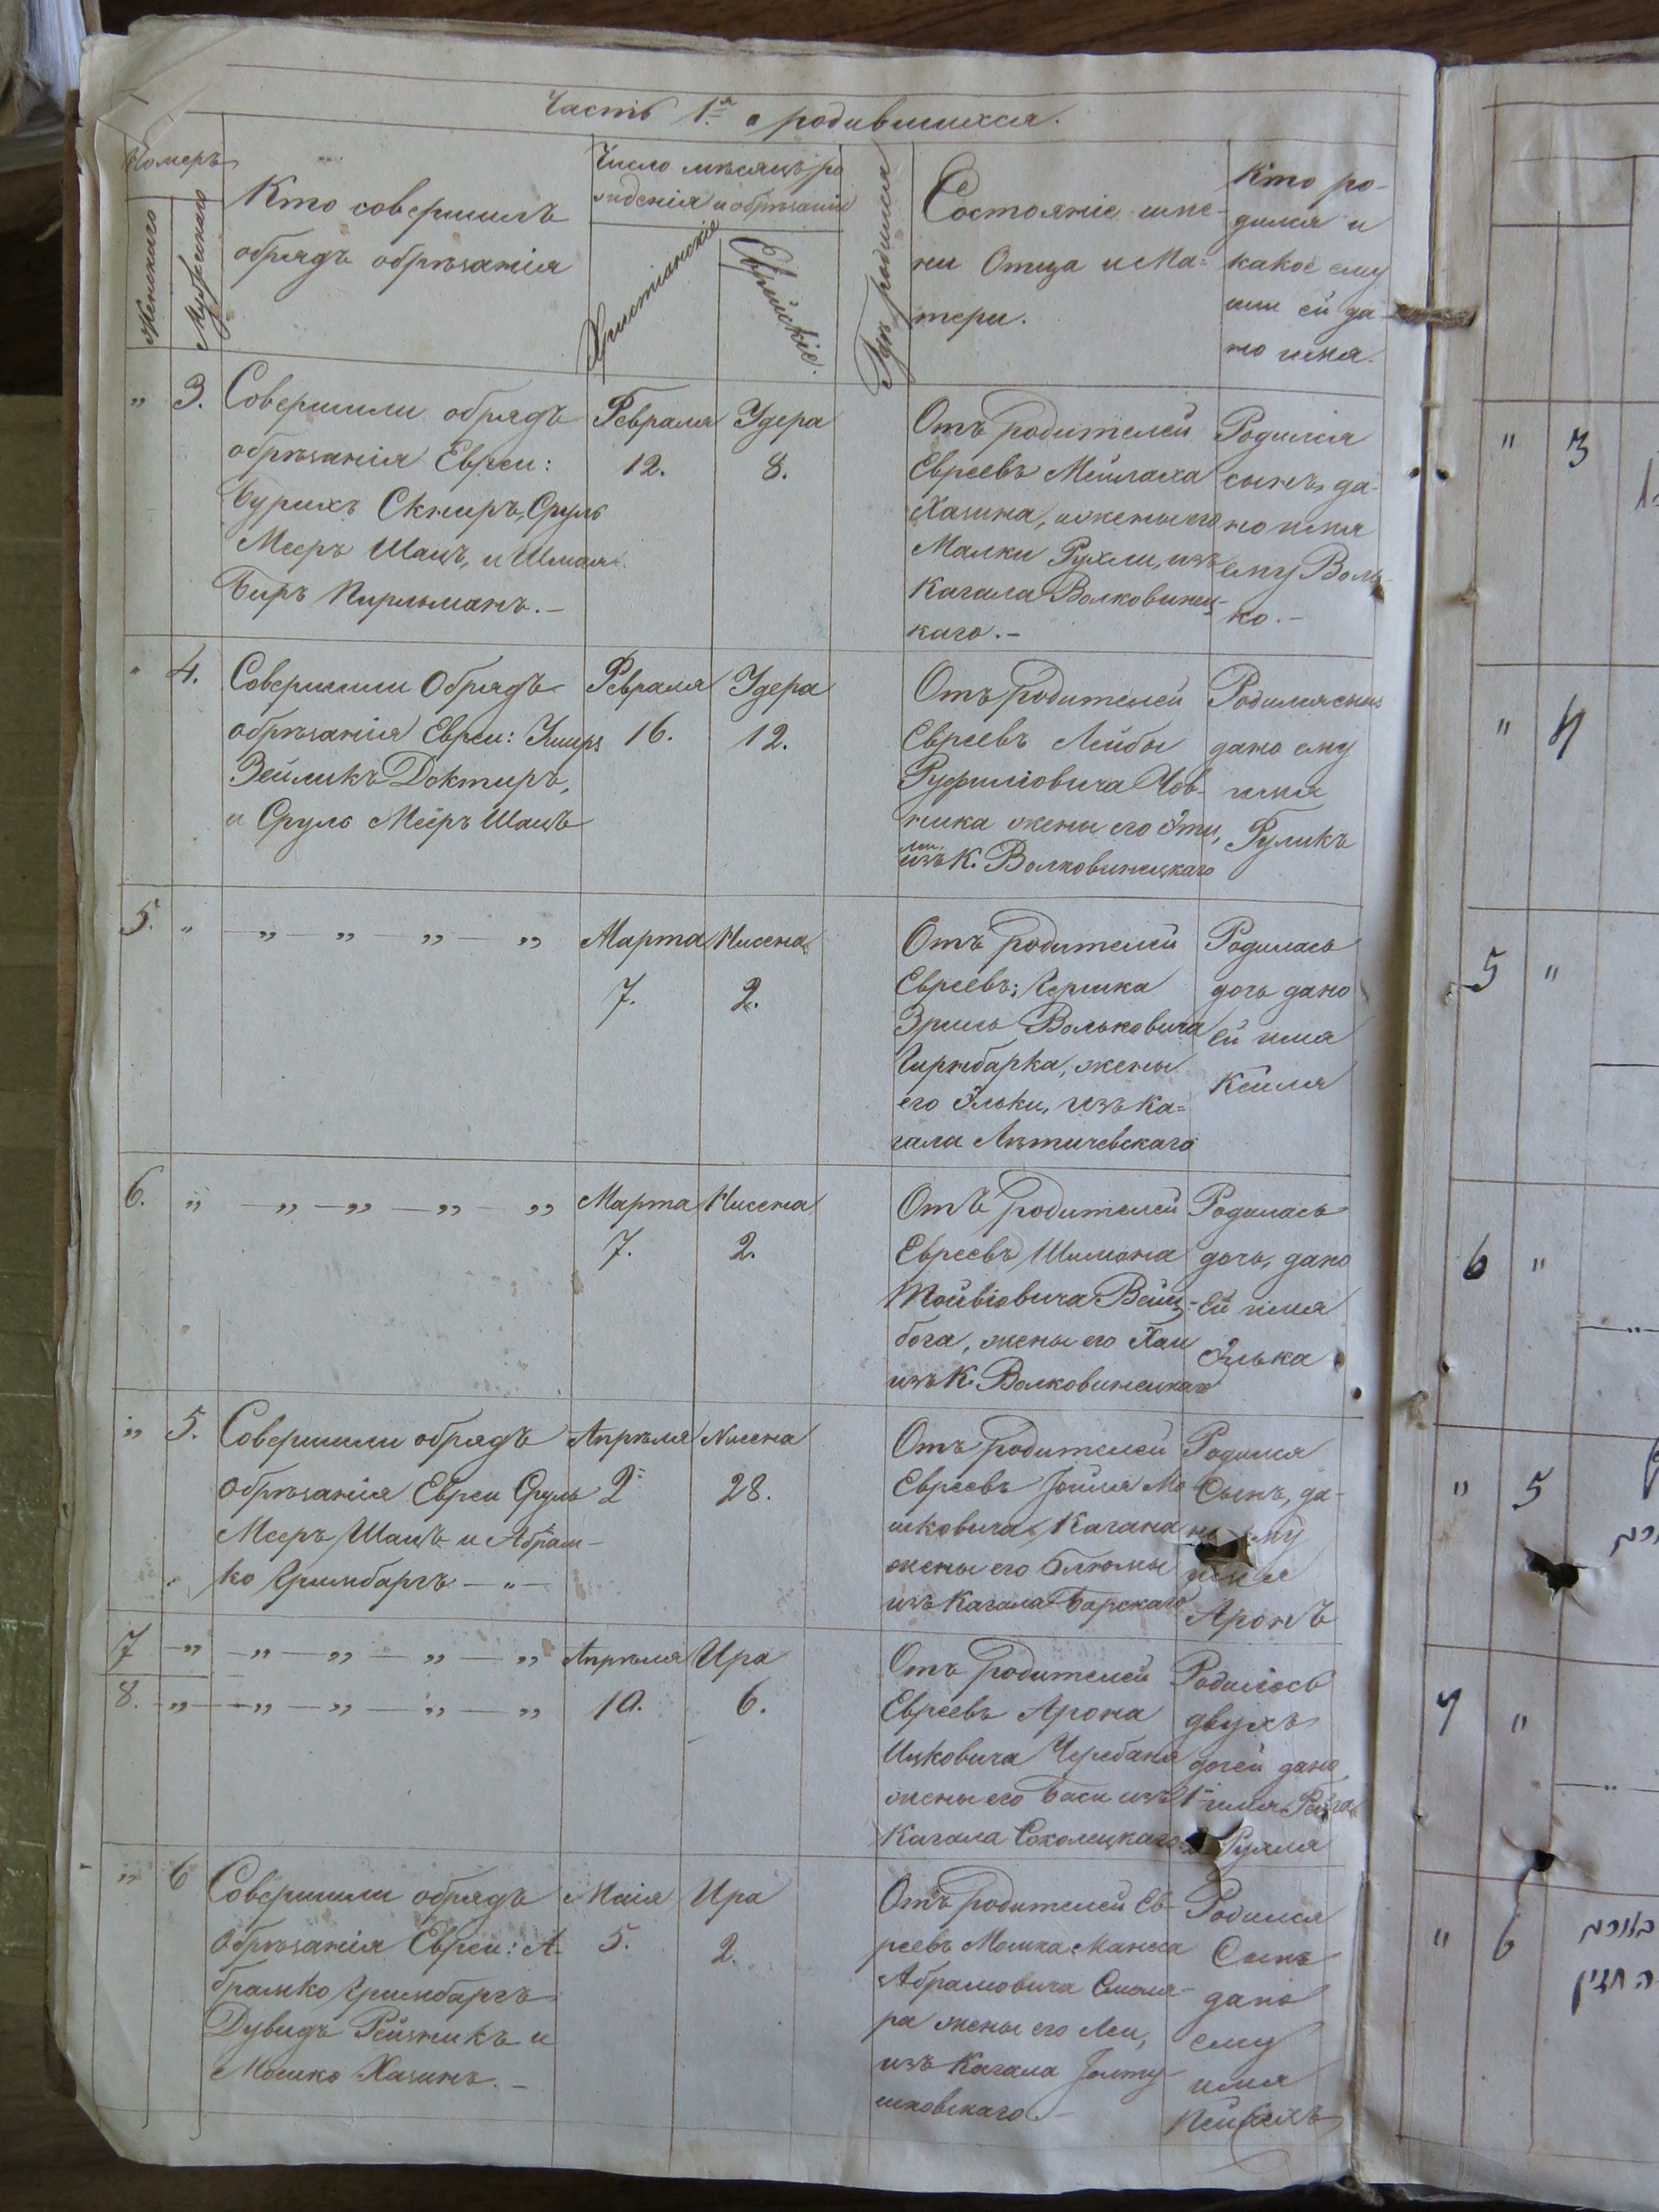 Часть 1.я о родившихся.
Номеръ
Женскаго
Мужескаго
Кто совершилъ
обрядъ обрѣзанія
Число мѣсяцъ ро
жденія и обрѣзанія
Христіанскіе
Еврейскіе.
Гдѣ родился
Состояніе име-
ни Отца и Ма=
тери.
Кто ро-
дился и
какое ему
или ей да-
но имя.
" 3.
Совершили обрядъ
обрѣзанія Евреи:
Бурихъ Скниръ, Сруль
Мееръ Шацъ, и Шмая
Биръ Пирльманъ.-
Февраля
12.
Удера
8.
Отъ родителей
Евреевъ Мейлаха
Хазина, и жены его
Малки Рухли, изъ
Кагала Волковинец-
каго.-
Родился
сынъ, да-
но имя
ему Воль-
ко.-
" 4.
Совершили Обрядъ
обрѣзанія Евреи:
Зейликъ Доктиръ,
и Сруль Мееръ Шацъ
Февраля
16.
Удера
12.
Отъ родителей
Евреевъ Лейбы
Руфиліовича Чов-
ника жены его Эти,
изъ К. Волковинецкаго
Родился сынъ
дано ему
имя
Гуликъ
5. " " — " " — "
Марта
7.
Нисена
2.
Отъ родителей
Евреевъ: Гершка
Зрись Вольковича
Гиржбарка, жены
его Эльки, изъ Ка=
гала Лѣтичевскаго
Родилась
дочь дано
ей имя
Кейля
6. " — " — " — " — "
Марта
7.
Нисена
2.
Отъ родителей
Евреевъ Шимона
Тойвіовича Вайц-
бога, жены его Хаи
изъ К. Волковинецкаго
Родилась
дочь, дано
Ей имя
Элька
" 5.
Совершили обрядъ
обрѣзанія Евреи Сруль
Мееръ Шацъ и Абрам-
ко Гринбаргъ — " —
Апрѣля
2
Нисена
28.
Отъ родителей
Евреевъ Іойля Мо
шковича Кагана
жены его Блюмы
изъ Кагала Барскаго
Родился
Сынъ, да-
но ему
имя
Аронъ
7 — " — " — " — " — "
8. — " — " — " — " — "
Апрѣля
10.
Ира
6.
Отъ родителей
Евреевъ Арона
Ицковича Черебаня
жены его Баси изъ
Кагала Соколецкаго
Родилось
двухъ
дочей дано
1й имя Рейза
2 Рухля
" 6
Совершили обрядъ
Обрѣзанія Евреи: А
брамко Гринбаргъ
Дувидъ Рейзникъ и
Мошко Хазинъ.-
Маія
5.
Ира
2.
Отъ родителей Ев-
реевъ Мошка Маниса
Абрамовича Смоля-
ра жены его Леи,
изъ Кагала Іолту
шковскаго.-
Родился
Сынъ
дано
ему
имя
Пейсехъ
" 3
" 4
5 "
6 "
" 5
7 "
" 6